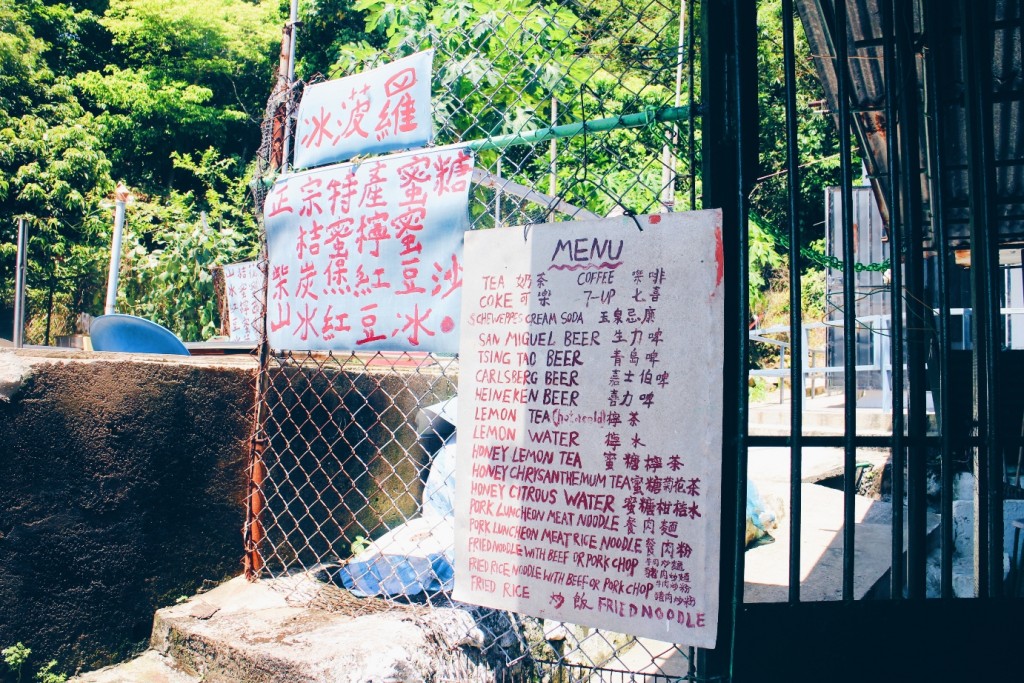 冰菠蘿
正宗特產蜜糖
桔蜜檸蜜
柴炭煲紅豆沙
山水紅豆冰
MENU
TEA 奶茶 COFFEE 啡
COKE 可樂 7-UP 七喜
SCHEWEPPES CREAM SODA 玉泉忌廉
SAN MIGUEL BEER 生力啤
TSING TAO BEER 青島啤
CARLSBERG BEER 嘉士伯啤
HEINEKEN BEER 喜力啤
LEMON TEA (hot or cold) 檸茶
LEMON WATER 檸水
HONEY LEMON TEA 蜜糖檸茶
HONEY CHRYSANTHEMUM TEA 蜜糖菊花茶
HONEY CITROUS WATER 蜜糖柑桔水
PORK LUNCHEON MEAT NOODLE 餐肉麵
PORK LUNCHEON MEAT RICE NOODLE 餐肉粉
FRIED NOODLE WITH BEEF OR PORK CHOP 牛肉炒麵 豬肉炒麵
FRIED RICE NOODLE WITH BEEF OR PORK CHOP 牛肉炒粉 豬肉炒粉
FRIED RICE 炒飯 FRIED NOODLE